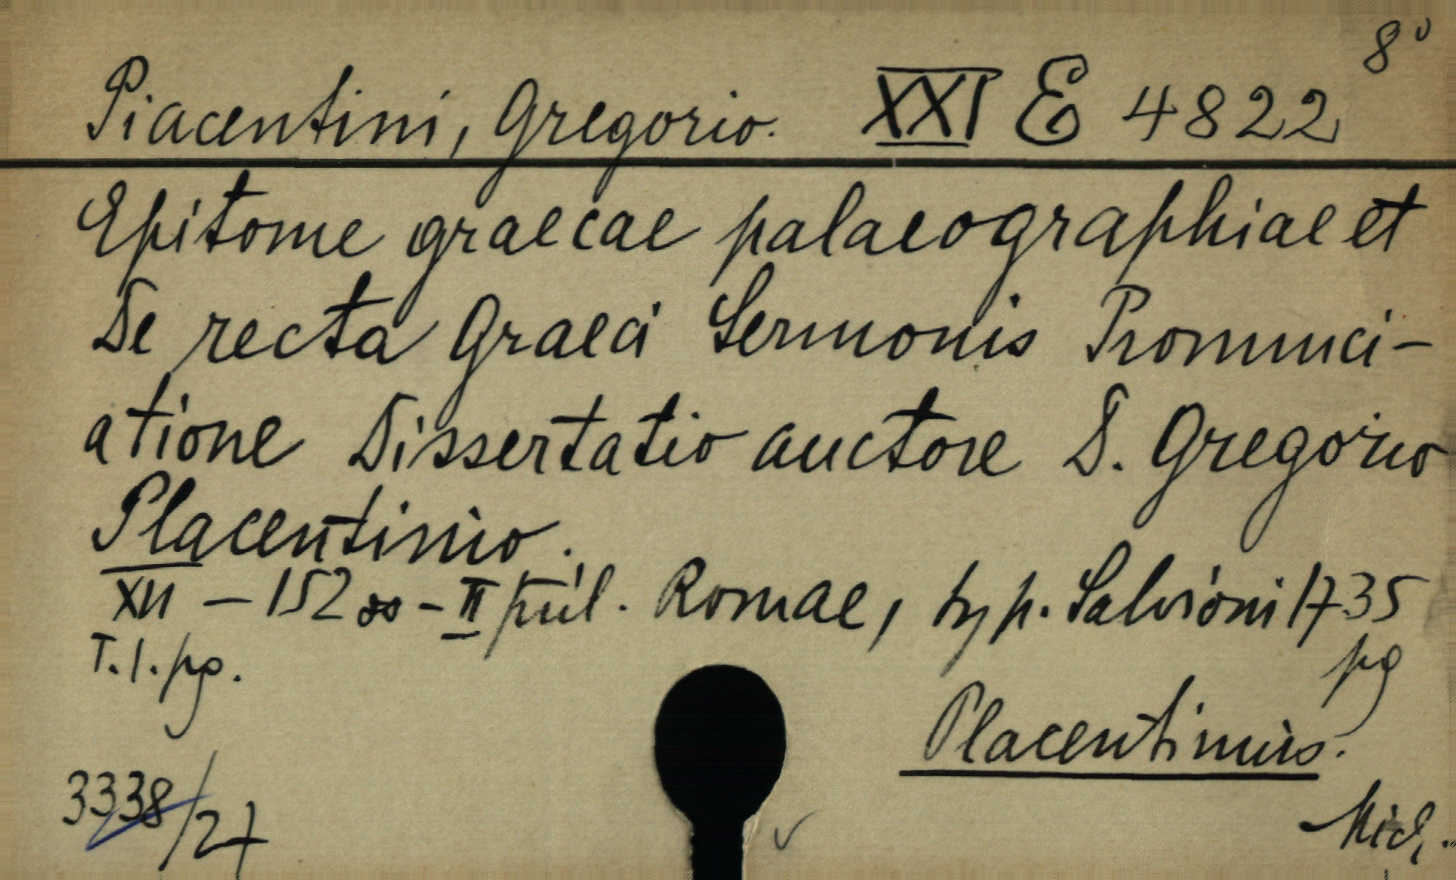 8°
Piacentini, Gregorio. XXI E 4822
Epitome graecae palaeographiae et
De recta Graeci Sermonis Pronunci-
atione Dissertatio auctore D. Gregorio
Placentinio.
XII - 152 - II Romae, typ. Salvioni 1735
T.1.pg. pg
Placentinius.
3338/27